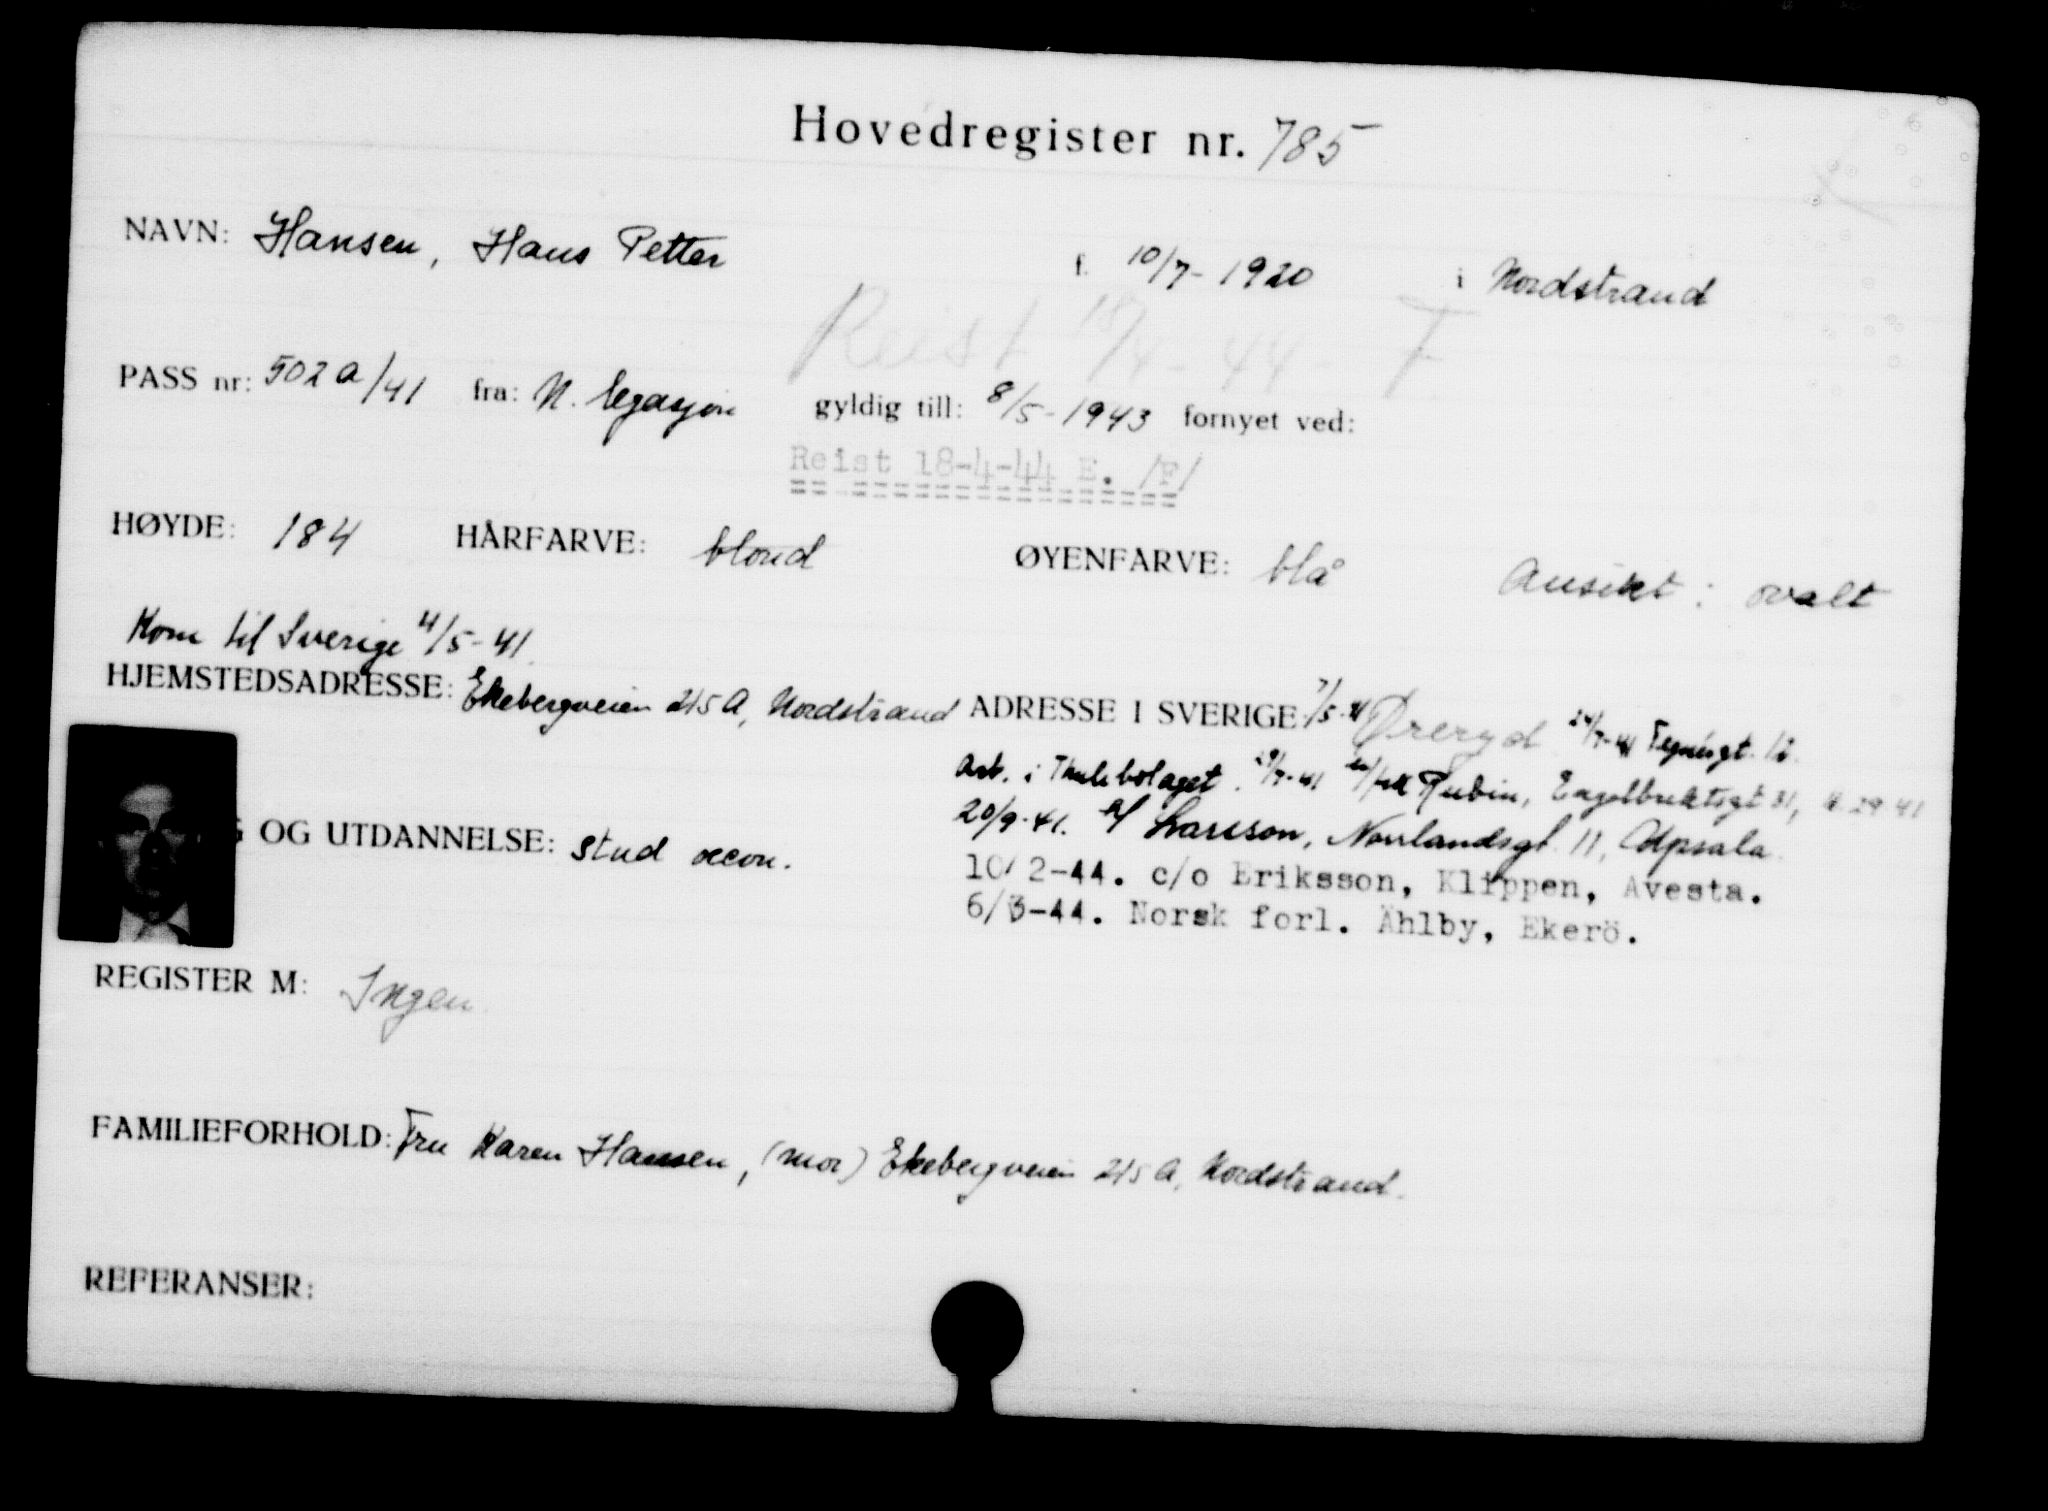 Hovedregister nr. 785
NAVN: Hansen, Hans Petter f. 10/7-1920 i Nordstrand
Reist 18/4-44 F
PASS nr: 502a/41 fra: N. legasjon gyldig till: 8/5-1943 fornyet ved:
Reist 18-4-44 E. /F/
HØYDE: 184 HÅRFARVE: blond ØYENFARVE: blå Ansikt: ovalt
Kom til Sverige 4/5-41.
HJEMSTEDSADRESSE: Ekebergveien 215 A, Nordstrand ADRESSE I SVERIGE: 7/5-41 Øreryd 24/7-41
Arb. i Thulebolaget. 29/7-41 Rubin,
G OG UTDANNELSE: stud oecon. 20/9-41. Larsson, Norrlandsgt. 11, Upsala.
10/2-44. c/o Eriksson, Klippen, Avesta.
6/3-44. Norsk forl. Ählby, Ekerö.
REGISTER M: Ingen
FAMILIEFORHOLD: Fru Karen Hansen, (mor) Ekebergveien 215 A, Nordstrand.
REFERANSER: